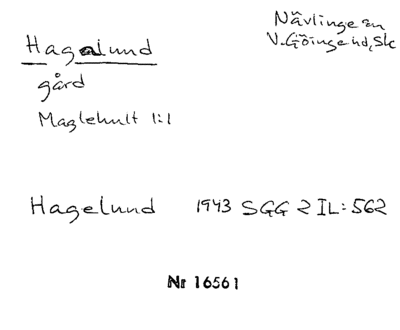 Hagalund
Nävlinge sn
V. Göinge hd, Sk
gård
Maglehult 1:1
Hagelund 1943 SGG 2 IL: 562
Nr 16561